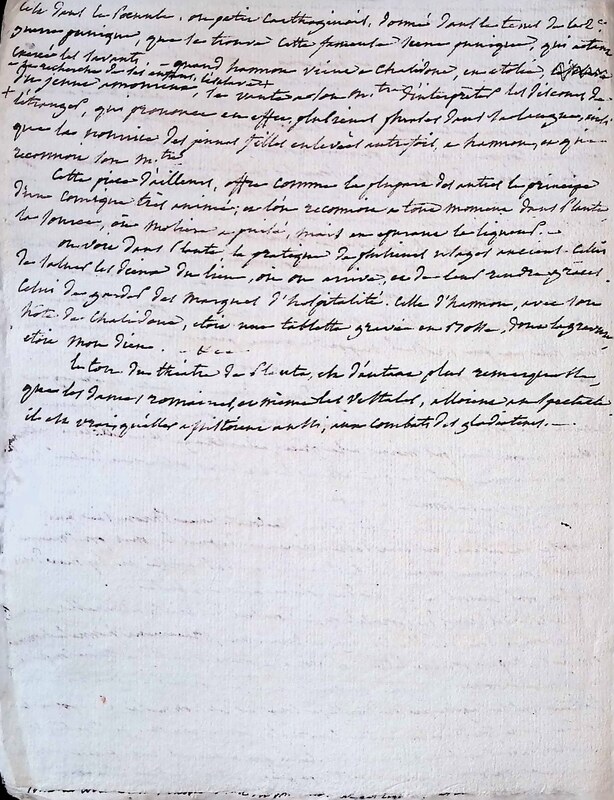 C'est dans le Poenule, ou petit Carthaginois, donné dans le tems de la 2e
guerre punique, que se trouve cette fameuse scene punique, qui a tant
exercé les savants. - quand hannon vient a Calidon, en etolie,
a la recherche de ses enfans, l'esclave
+ du jeune amoureux, se vante a son mtre d'interpreter les discours de
l'etranger, qui prononce en effet, plusieurs phrases dans sa langue, ainsi
que la nourrice des jeunes filles enlevées autrefois, a hannon, et qui
reconnoit son mtre.
Cette piece d'ailleurs, offre comme la plupart des autres le principe
d'un comique très animé; et l'on reconnoit a tout moment dans Plaute
la source, où moliere a puisé, mais en epurant la liqueur. -
on voit dans Plaute la pratique de plusieurs usages anciens. Celui
de saluer les dieux du lieu, où on arrive, et de leur rendre graces.
Celui de garder des marques d'hospitalité. Celle d'hannon, avec son
hote de Calidon, etoit une tablette gravée en , dont la gravure
etoit mon dieu. - &c. -
le ton du théatre de Plaute, est d'autant plus remarquable,
que les dames romaines, et même les vestales, alloient au spectacle
il est vrai qu'elles assistoient aussi, aux combats des gladiateurs. -